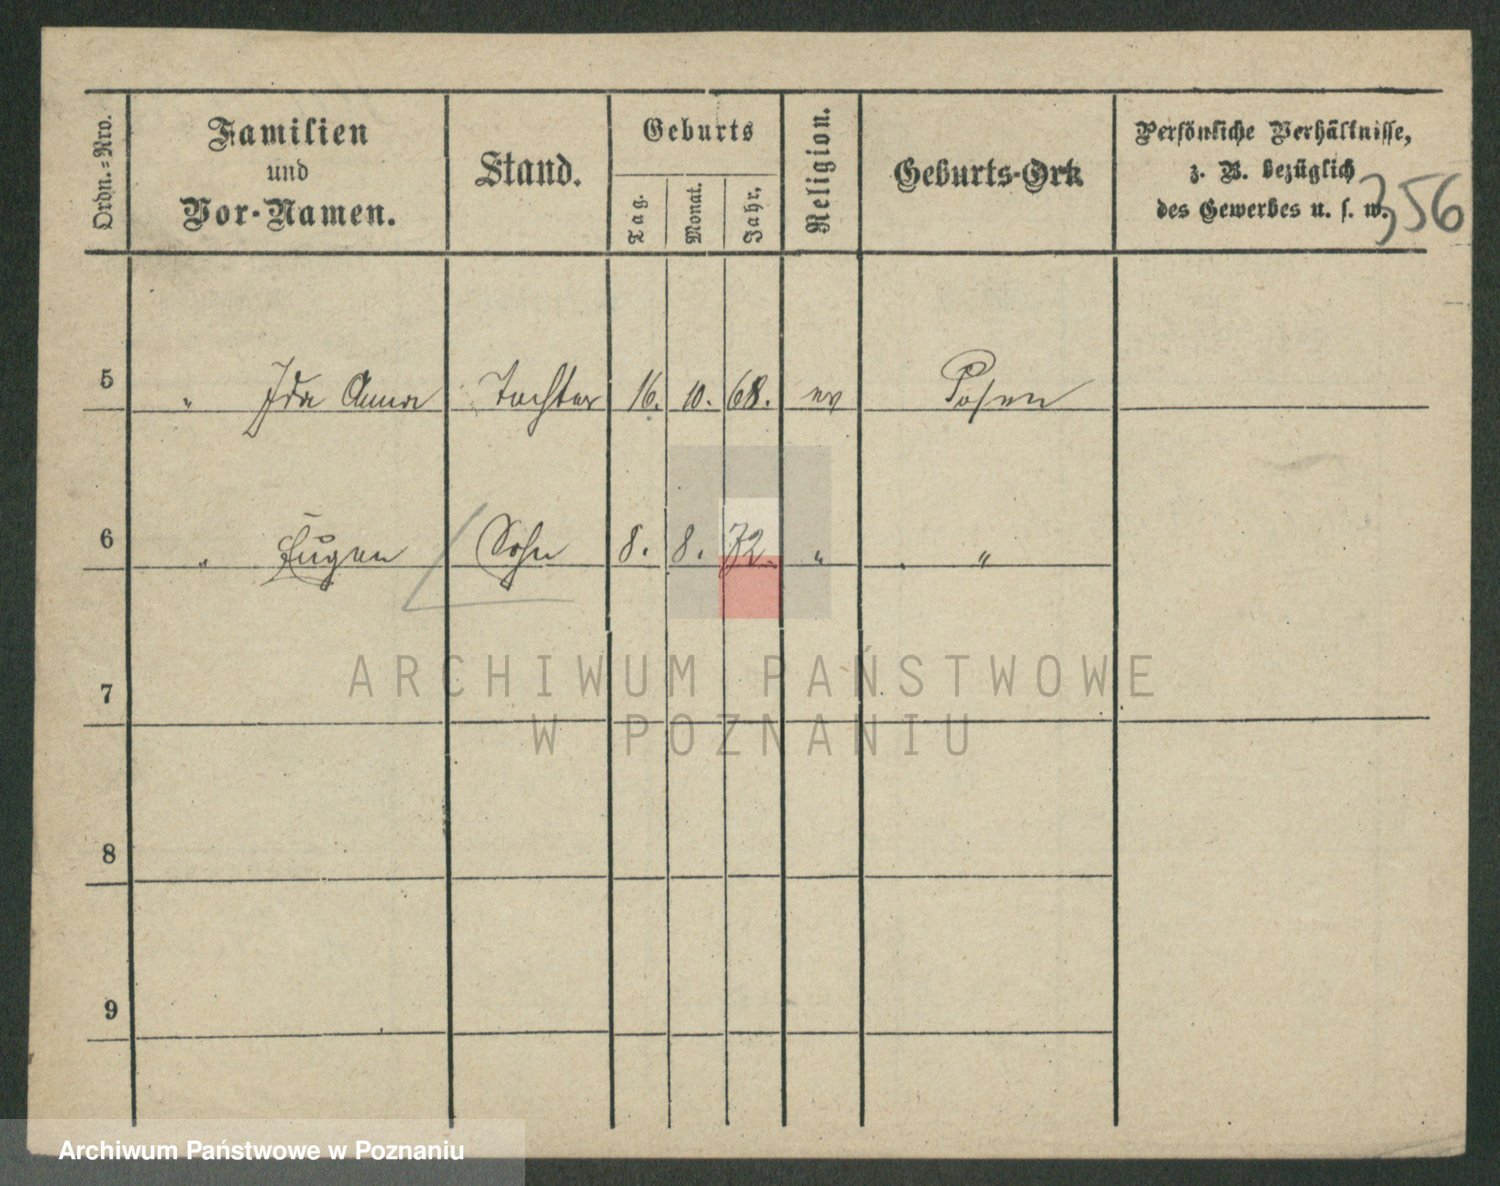 Ordn.-Nro.
Familien
und
Vor-Namen.
Stand.
Geburts
Tag.
Monat.
Jahr.
Religion.
Geburts-Ort
Persönliche Verhältnisse,
z. B. bezüglich
des Gewerbes u. s. w.
356
5 " Ida Anna Tochter 16. 10. 68. ev Posen
6 " Eugen Sohn 8. 8. 72. " "
7
8
9
ARCHIWUM PAŃSTWOWE
W POZNANIU
Archiwum Państwowe w Poznaniu